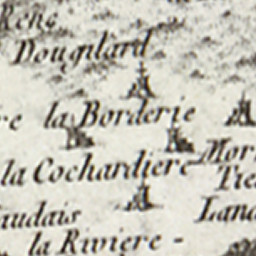 Rene
Dougilard
re la Borderie
la Cochardiere Mor
Tre
audais Land
la Riviere -